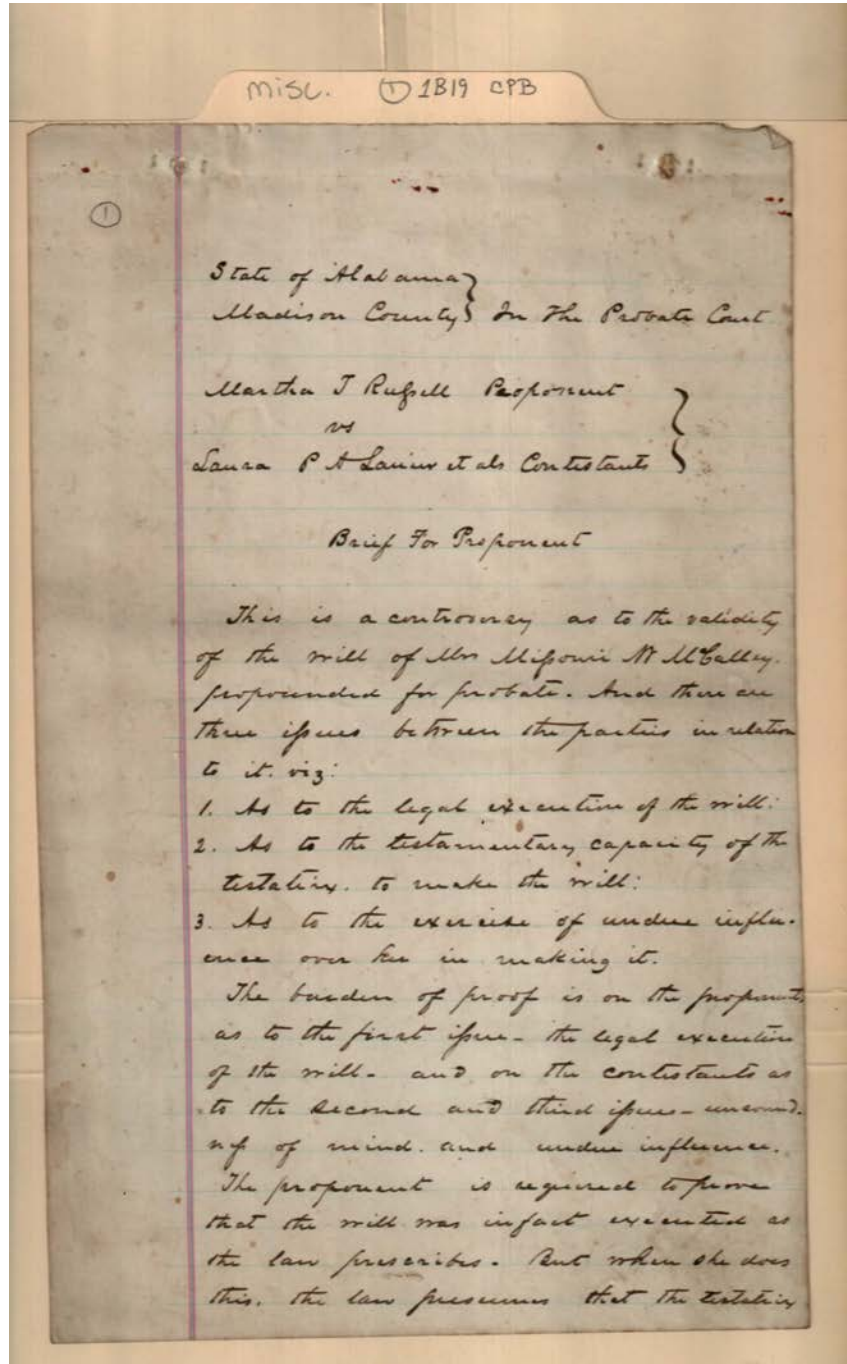 misc. ① 1B19 CPB
①
State of Alabama
Madison County } In The Probate Court
Martha T Russell Proponent
vs
Laura P A Lanier et als Contestants }
Brief For Proponent
This is a controversy as to the validity
of the will of Mrs Missouri McCalley.
propounded for probate. And there are
three issues between the parties in relation
to it. viz:
1. As to the legal execution of the will:
2. As to the testamentary capacity of the
testatrix. to make the will:
3. As to the exercise of undue influ-
ence over her in making it.
The burden of proof is on the proponent,
as to the first issue - the legal execution
of the will - and on the contestants as
to the second and third issues - unsound-
ness of mind. and undue influence.
The proponent is required to prove
that the will was in fact executed as
the law prescribes. But when she does
this. the law presumes that the testatrix